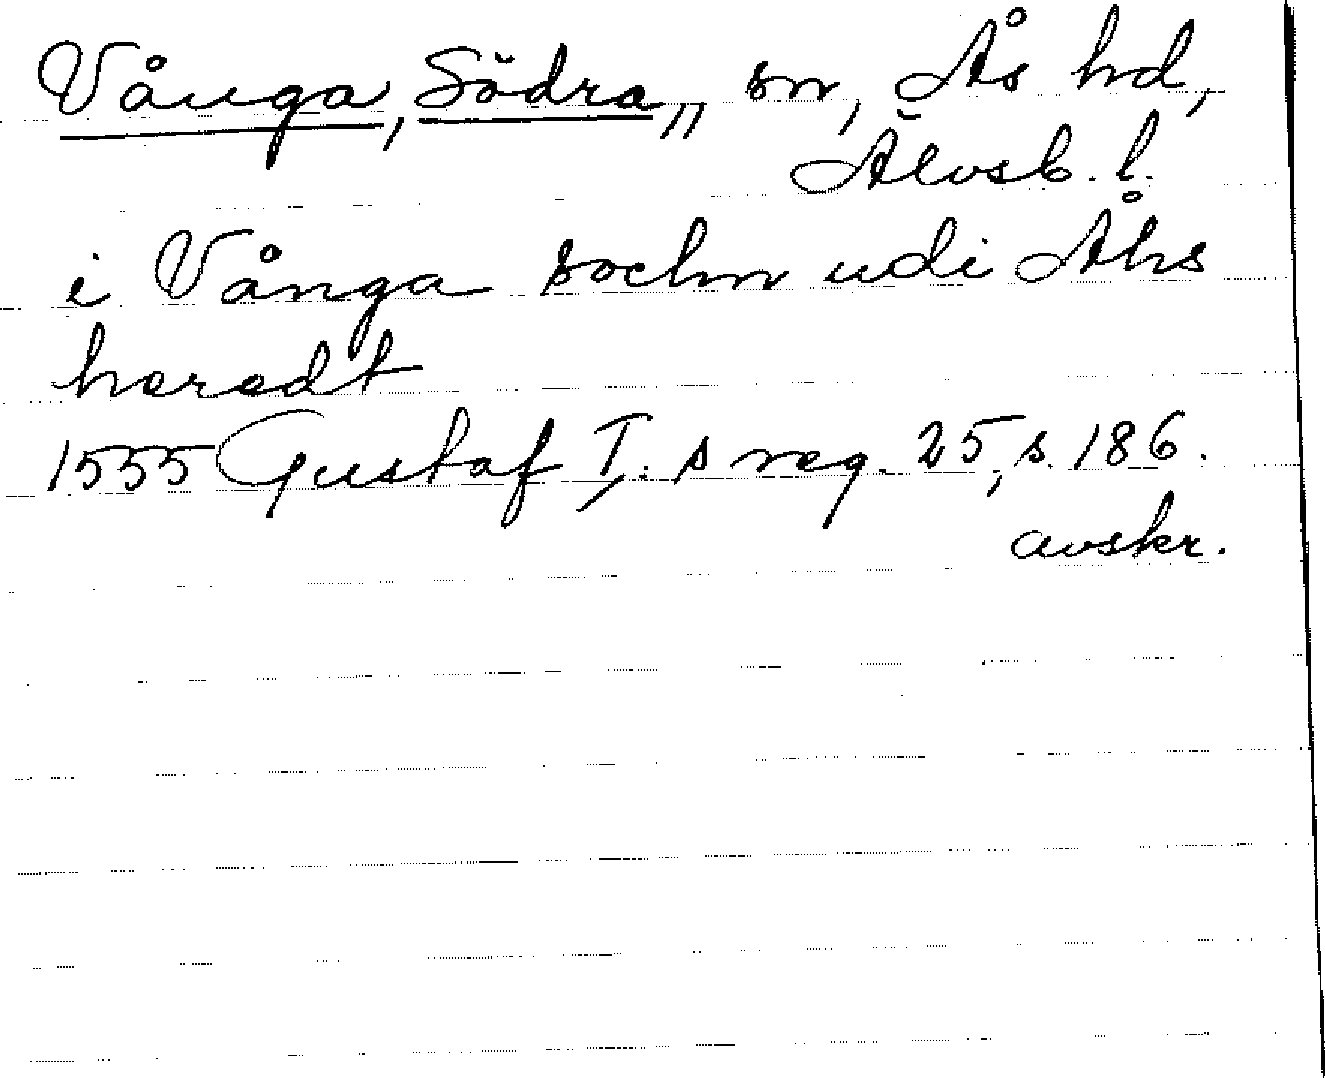 Vånga, Södra,, sn, Ås hd,
Älvsb. l.
i Vånga sochn udi Åhs
heredt
1555 Gustaf I:s reg. 25, s. 186.
avskr.